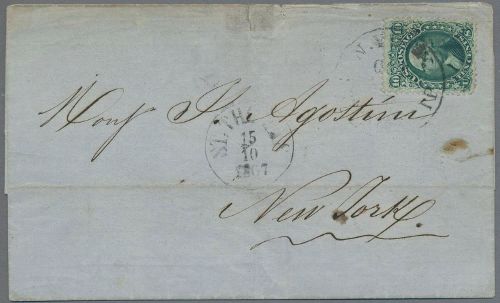 10 10
Monsr. J. Agostini
ST. THO
15
10
1867
New York.